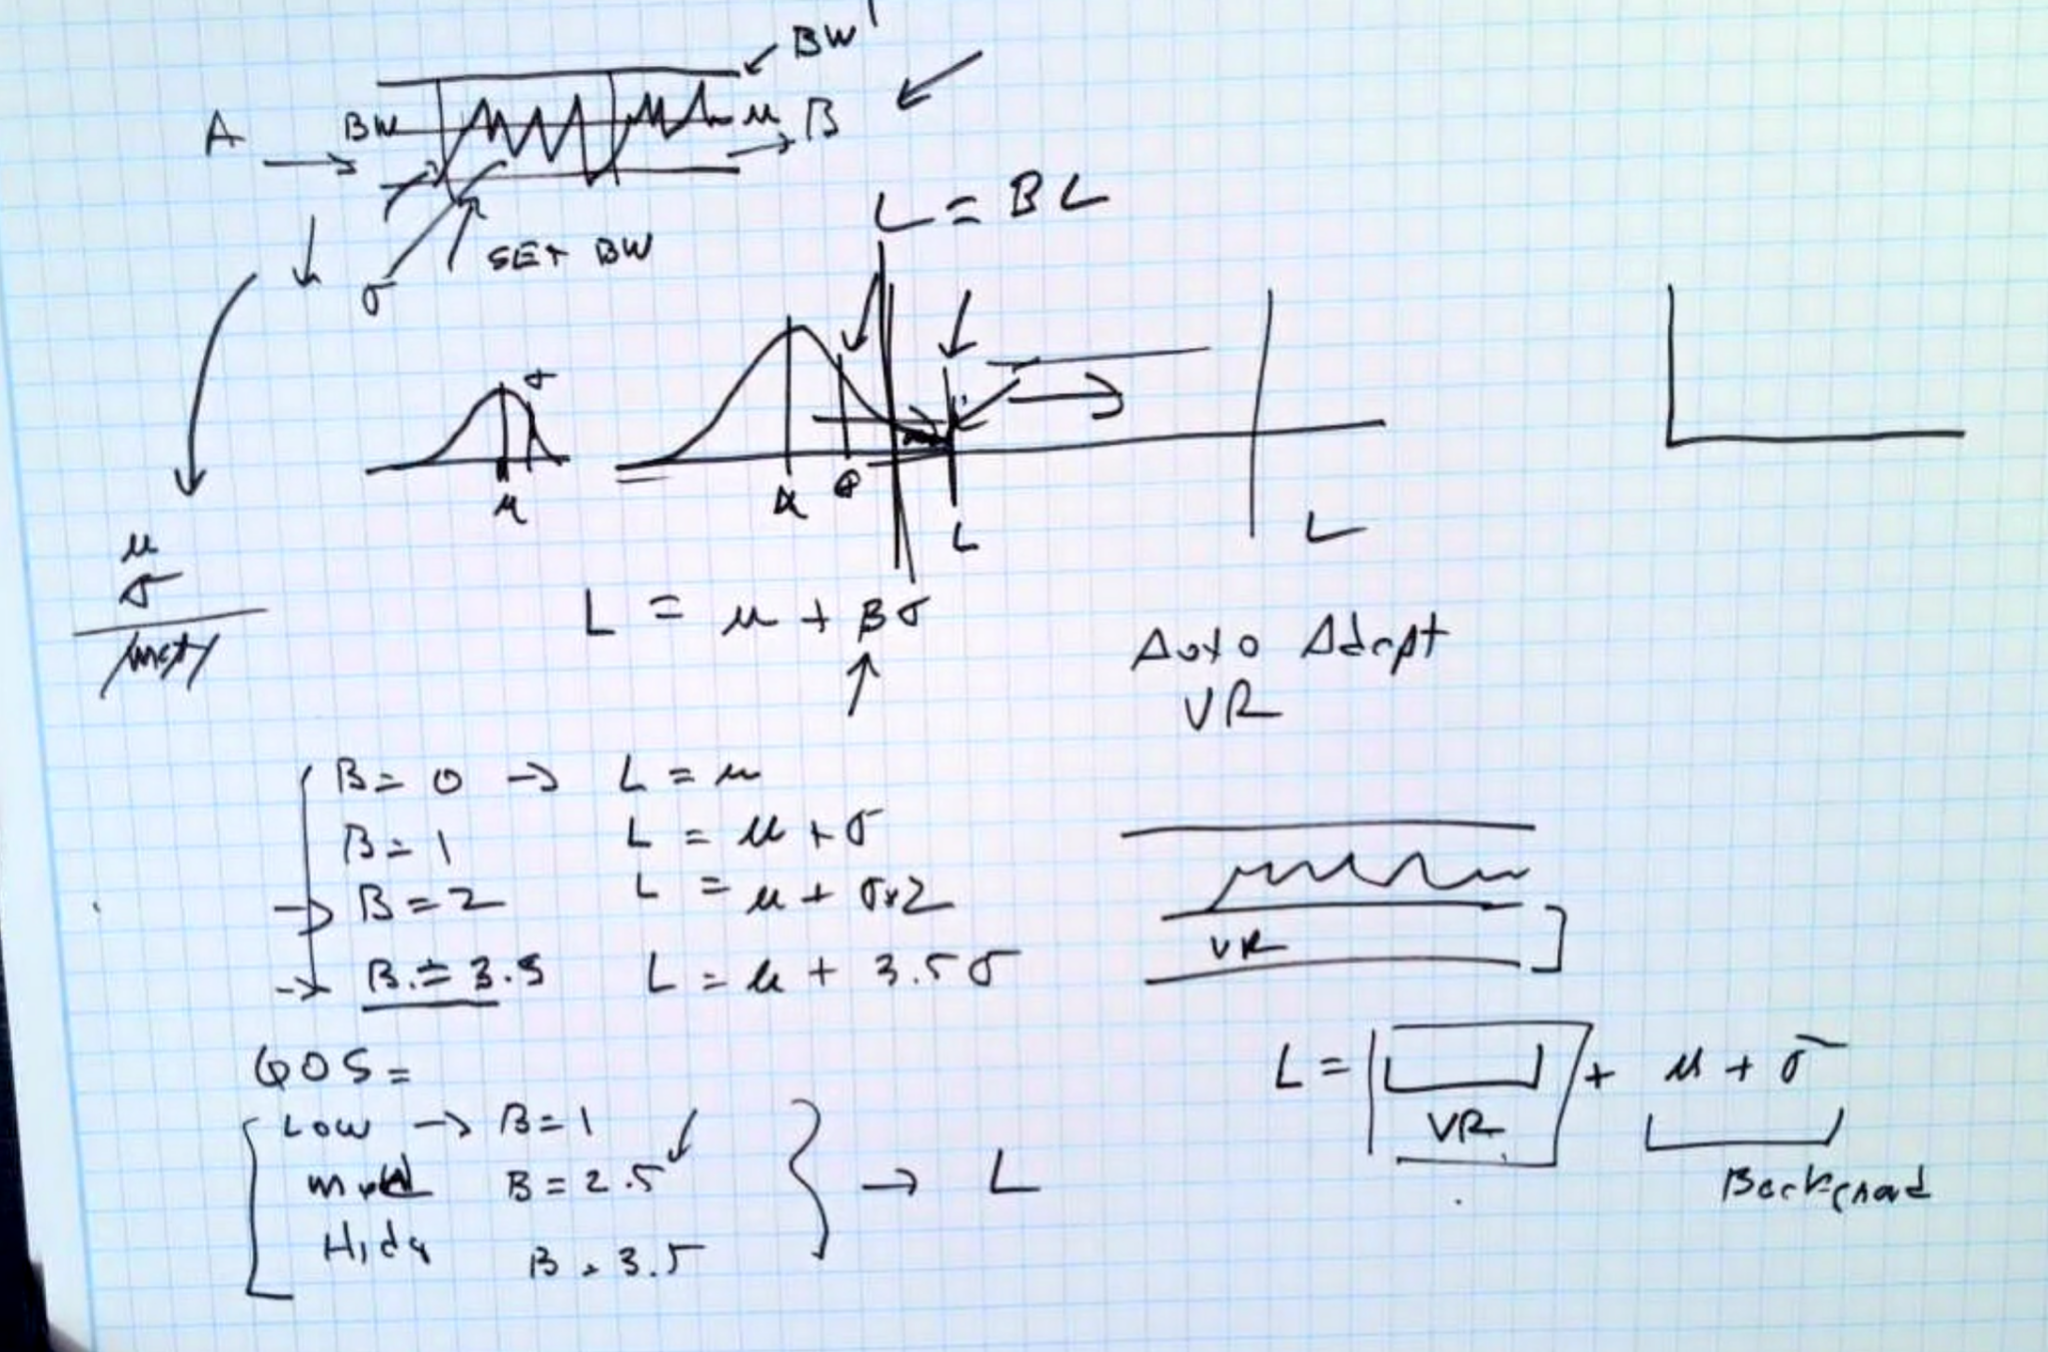 BW'
A BW μ B
SET BW
σ
L = BL
σ
μ
μ σ L L
μ
σ
L = μ + βσ
Auto Adapt
VR
B = 0 → L = μ
B = 1 L = μ + σ
→ B = 2 L = μ + σx2
→ B = 3.5 L = μ + 3.5σ
VR
QOS =
Low → B = 1
B = 2.5
B = 3.5
→ L
L = VR + μ + σ